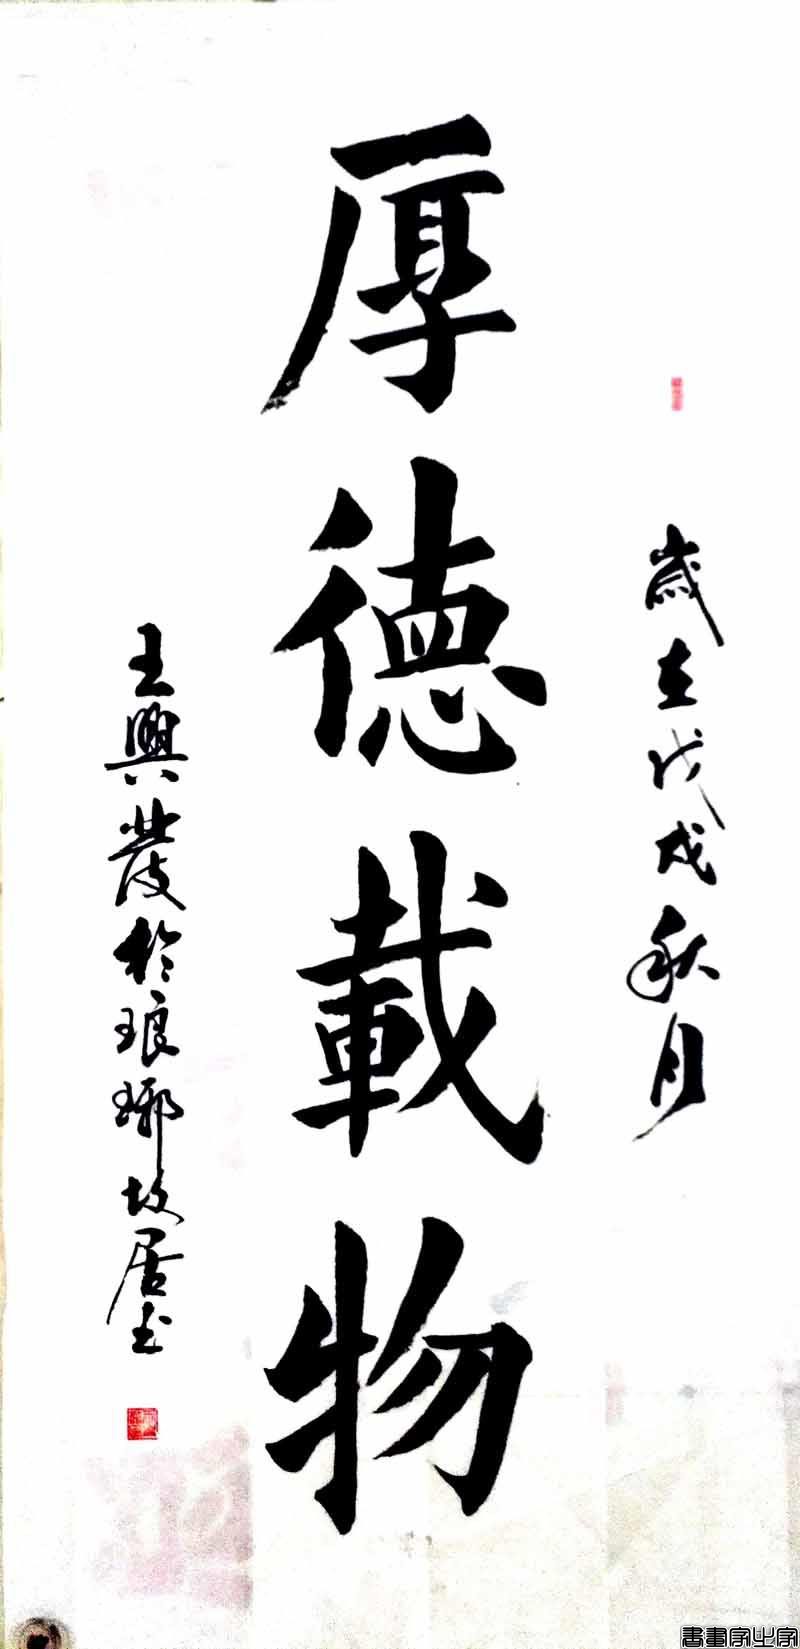 歲在戊戌秋月
厚德載物
王興發於琅琊故居书
書畫家出字